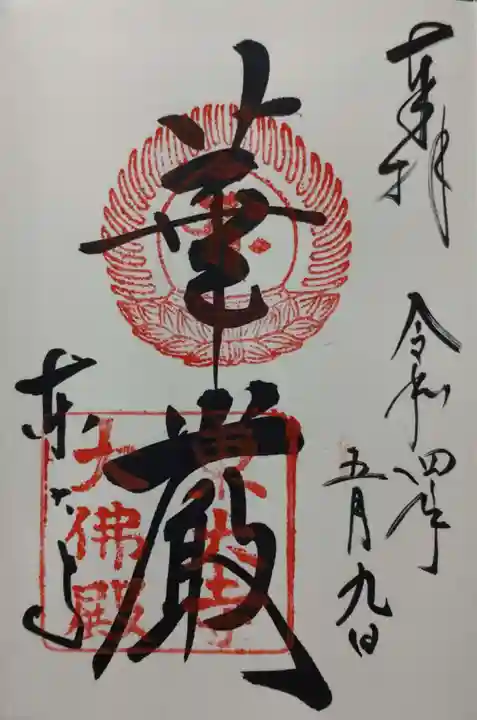 奉拝
令和四年
五月九日
華厳
東大寺
東大寺
大佛殿